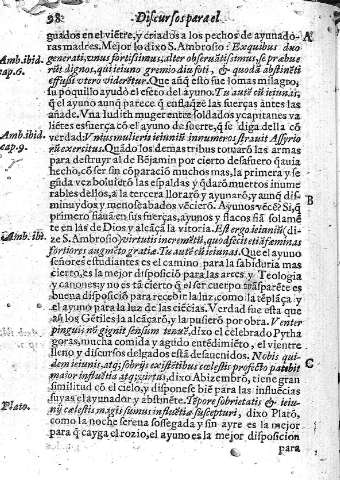 98 Discursos para el
guados en el viẽtre, y criados a los pechos de ayunado-
ras madres. Mejor lo dixo S. Ambrosio: Ex equibus duo
generati, vnus fortissimus, alter obseruãtissimus, se præbue
rũt dignos, qui ieiuno gremio diu foti, & quodã abstinẽti
effusi vtero viderẽtur. Que aũq̃ esto fue lo mas milagro,
su poquillo ayudò el efeto del ayuno. Tu autẽ cũ ieiunas,
q̃ el ayuno aunq̃ parece q̃ enflaq̃ze las fuerças antes las
añade. Vna Iudith muger entre soldados y capitanes va
liẽtes esfuerça cõ el ayuno de suerte, q̃ se diga della cõ
verdad: Vnius mulieris ieiuniũ innumeros strauit Assyrio
rũ exercitus. Quãdo los demas tribus tomarõ las armas
para destruyr al de Bẽjamin por cierto desafuero q̃ auia
hecho, cõ ser sin cõparaciõ muchos mas, la primera y se
gũda vez boluierõ las espaldas y q̃darõ muertos inume
rables dellos, a la tercera llorarõ y ayunarõ, y aunq̃ dis-
minuydos y menoscabados vẽcierõ. Ayunos vẽcẽ? Si, q̃
primero fiauã en sus fuerças, ayunos y flacos fiã solamẽ
te en las de Dios y alcãçã la vitoria. Est ergo ieiuniũ (di
ze S. Ambrosio) virtutis incremẽtũ, quod fecit etiã fæminas
fortiores augmẽto gratiæ. Tu autẽ cũ ieiunas. Que el ayuno
señores estudiantes es camino para la sabiduria mas
cierto, es la mejor disposiciõ para las artes, y Teologia
y canones, y no es tã cierto q̃ el ser cuerpo trãsparẽte es
buena disposiciõ para recebir la luz, como la tẽplãça, y
el ayuno para la luz de las ciẽcias. Verdad fue esta que
aũ los Gẽtiles la alcãçarõ, y la pusierõ por obra. Venter
pinguis nõ gignit sensum tenuẽ, dixo el celebrado Pytha
goras, mucha comida y agudo entẽdimiẽto, el vientre
lleno y discursos delgados estã desauenidos. Nobis qui-
dem ieiunis, atq; sobrijs existẽtibus cælestis profecto patebit
maior influẽtia atq; virtus, dixo Abizembrõ, tiene gran
similitud cõ el cielo, y dispone se biẽ para las influẽcias
suyas el ayunador y abstinẽte. Tẽpore sobrietatis & ieiu-
nij cælestis magis sumus influẽtiæ suscepturi, dixo Platõ,
como la noche serena sossegada y sin ayre es la mejor
para q̃ cayga el rozio, el ayuno es la mejor disposicion
para
Amb. ibid.
cap. 6.
Amb. ibid.
cap. 9.
Amb. ibi.
Plato.
A
B
C